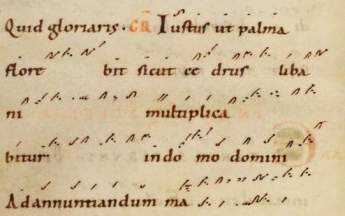 Quid gloriaris. GR Iustus ut palma
flore bit sicut ce drus liba
ni multiplica
bitur in do mo domini
Ad annuntiandum ma